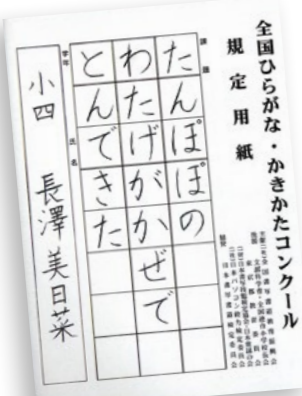 全国ひらがな・かきかたコンクール
規定用紙
課題
たんぽぽの
わたげがかぜで
とんできた
学年
氏名
小四 長澤美日菜